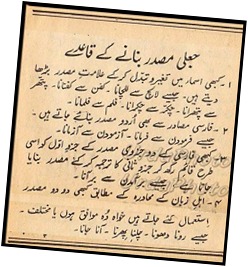 جعلی مصدر بنانے کے قاعدے
۱۔ کبھی اسما میں تغیر و تبدل کر کے علامتِ مصدر بڑھا
دیتے ہیں۔ جیسے لالچ سے للچانا۔ کفن سے کفنانا۔ پتھر
سے پتھرانا۔ چکر سے چکرانا۔ فلم سے فلمانا۔
۲۔ فارسی مصادر سے بھی اُردو مصدر بنائے جاتے ہیں۔
جیسے فرمودن سے فرمانا۔ آزمودن سے آزمانا۔
کبھی فارسی کے دو جزوی مصدر کے جزوِ اول کو اسی
طرح قائم رکھ کر جزوِ ثانی کا ترجمہ کر کے مصدر بنایا
جاتا ہے۔ جیسے برآمدن سے بر آنا۔
۴۔ اہل زبان کے محاورہ کے مطابق کبھی دو دو مصدر
استعمال کئے جاتے ہیں خواہ وہ موافق ہوں یا مختلف۔
جیسے رونا دھونا۔ چلنا پھرنا۔ آنا جانا۔